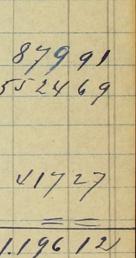 87991
552469
41727
==
1.19612